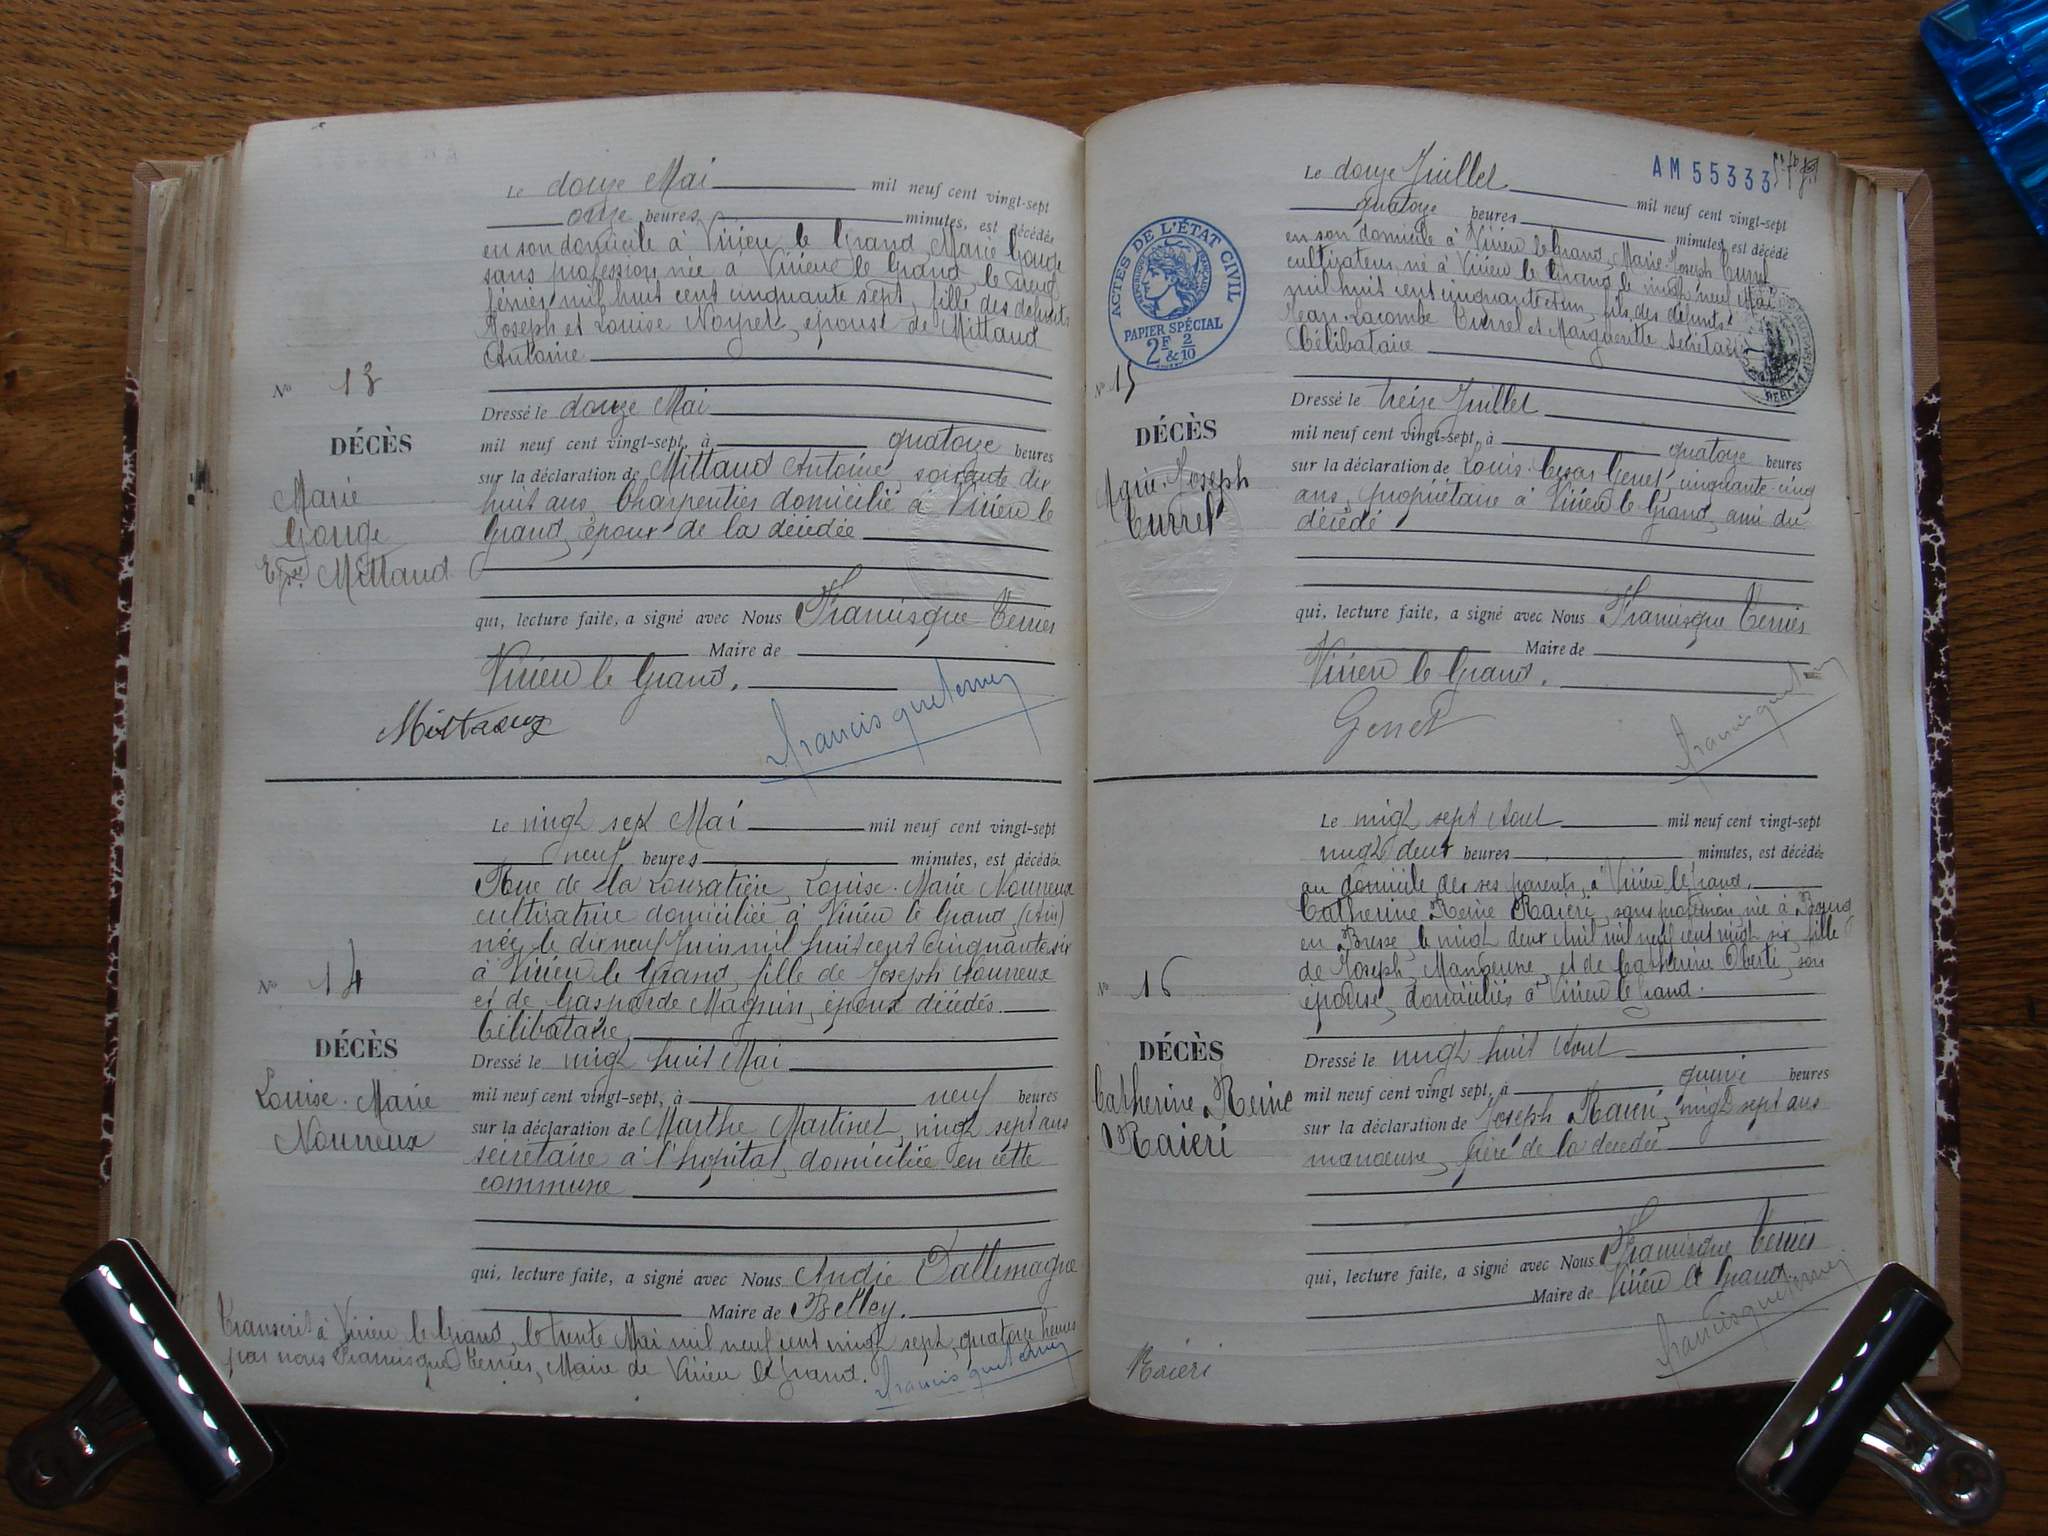 Le douze Mai mil neuf cent vingt-sept
onze heures minutes, est décédée
en son domicile à Virieu le Grand, Marie Gouge
sans profession, née à Virieu le Grand, le neuf
février mil huit cent cinquante sept, fille des défunts
Joseph et Louise Noyret, épouse de Mittaud
Antoine
No 13
DÉCÈS
Marie
Gouge
Epse Mittaud
Dressé le douze Mai
mil neuf cent vingt-sept, à quatorze heures
sur la déclaration de Mittaud Antoine, soixante dix
huit ans, Charpentier domicilié à Virieu le
Grand, époux de la décédée
qui, lecture faite, a signé avec Nous Francisque Terrier
Maire de
Virieu le Grand.
Mittaud
Francisque Terrier
Le vingt sept Mai mil neuf cent vingt-sept
neuf heures minutes, est décédée
Rue de la Louvatière, Louise-Marie
cultivatrice domiciliée à Virieu le Grand, (Ain)
née le dix neuf Juin mil huit cent cinquante six
à Virieu le Grand, fille de Joseph
et de Gasparde Magnin, époux décédés.
Célibataire,
No 14
DÉCÈS
Louise-Marie
Dressé le vingt huit Mai
mil neuf cent vingt-sept, à neuf heures
sur la déclaration de Marthe Martinet, vingt sept ans
secrétaire à l'hôpital, domiciliée en cette
commune
qui, lecture faite, a signé avec Nous André Dallemagne
Maire de Belley.
Transcrit à Virieu le Grand, le trente Mai mil neuf cent vingt sept, quatorze heures
par nous Francisque Terrier, Maire de Virieu le Grand.
Francisque Terrier
AM 55333
Le douze Juillet mil neuf cent vingt-sept
quatorze heures minutes, est décédé
en son domicile à Virieu le Grand, Marie-Joseph Turrel
cultivateur, né à Virieu le Grand le vingt neuf Mai
mil huit cent cinquante et un, fils des défunts
Jean-Lacombe Turrel et Marguerite
Célibataire
ACTES DE L'ÉTAT CIVIL
RÉPUBLIQUE FRANÇAISE
PAPIER SPÉCIAL
2F & 2/10
No 15
DÉCÈS
Marie-Joseph
Turrel
Dressé le treize Juillet
mil neuf cent vingt-sept, à quatorze heures
sur la déclaration de Louis-César Genet, cinquante-cinq
ans, propriétaire à Virieu le Grand, ami du
décédé
qui, lecture faite, a signé avec Nous Francisque Terrier
Maire de
Virieu le Grand.
Genet
Francisque Terrier
Le vingt sept Août mil neuf cent vingt-sept
vingt deux heures minutes, est décédée
au domicile de ses parents, à Virieu le Grand,
Catherine Reine Raieri, sans profession, née à Bourg
en Bresse, le vingt deux Avril mil neuf cent vingt six, fille
de Joseph, Manoeuvre, et de Catherine Oberti, son
épouse, domiciliés à Virieu le Grand.
No 16
DÉCÈS
Catherine Reine
Raieri
Dressé le vingt huit Août
mil neuf cent vingt sept, à quinze heures
sur la déclaration de Joseph Raieri, vingt sept ans
manoeuvre, père de la décédée
qui, lecture faite, a signé avec Nous Francisque Terrier
Maire de Virieu le Grand
Raieri
Francisque Terrier